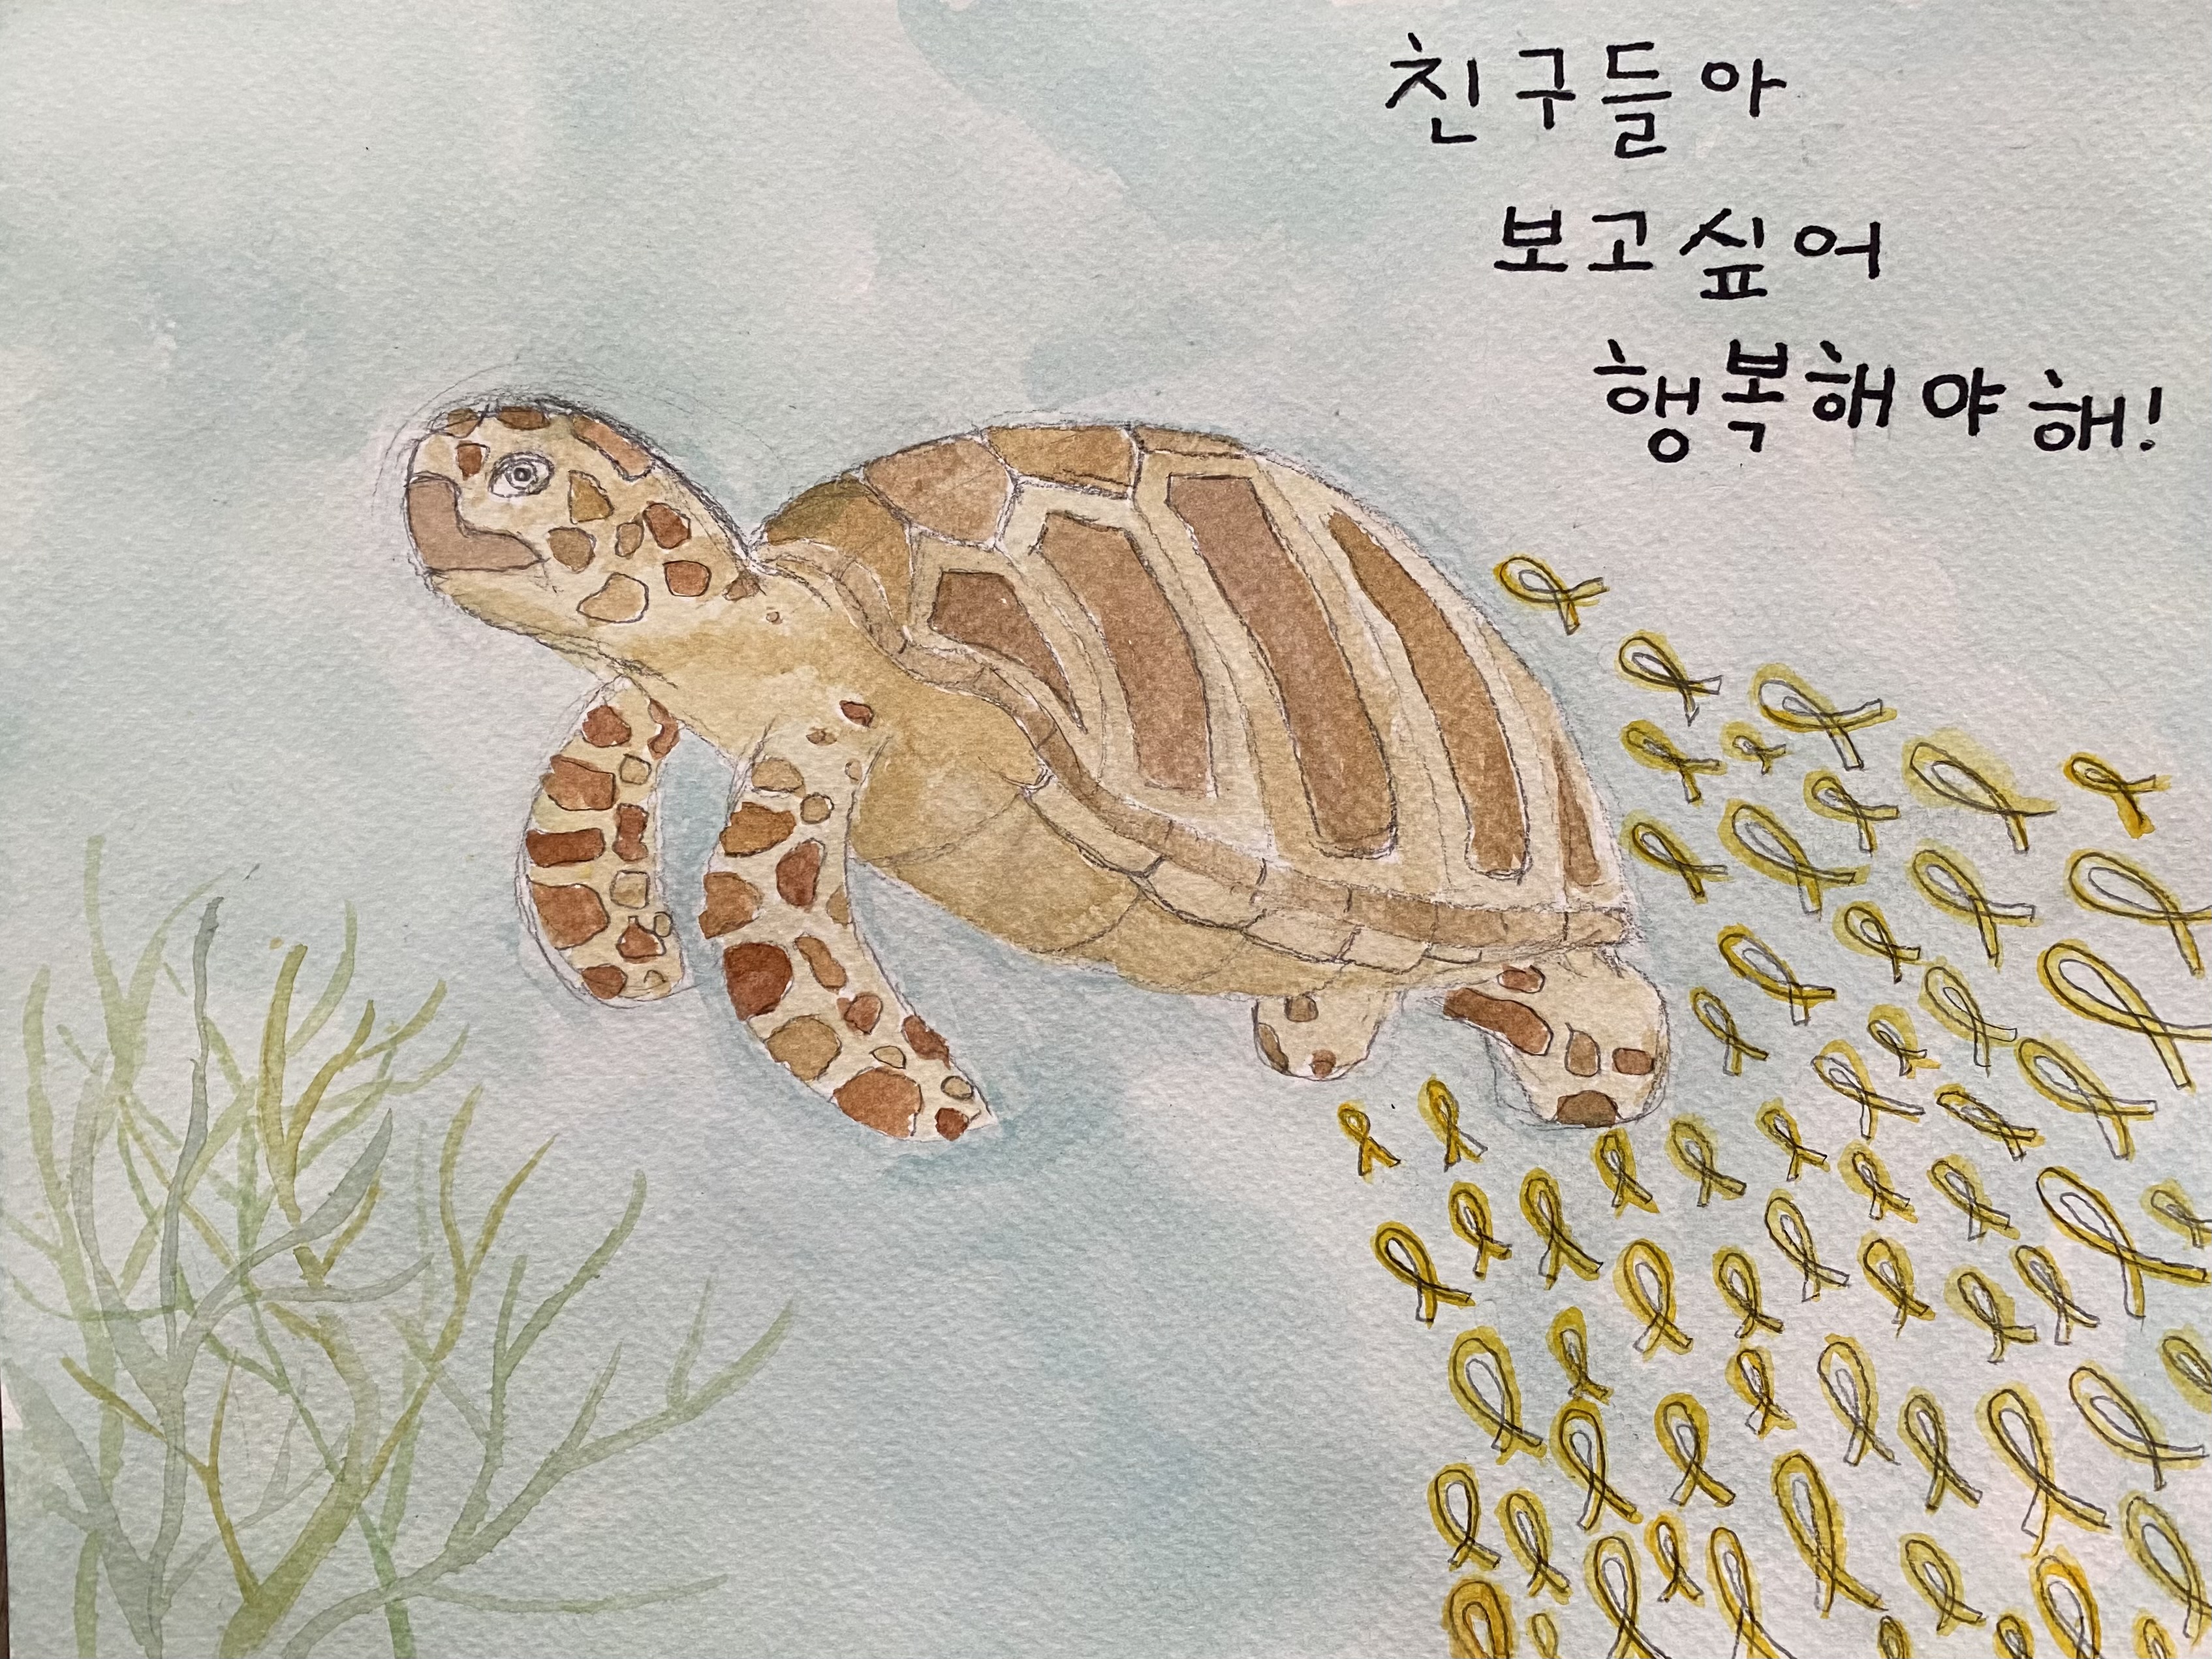 친구들아
보고싶어
행복해야해!